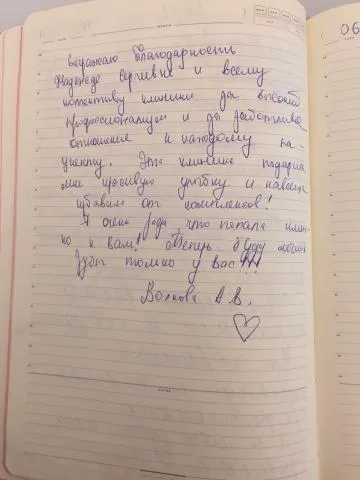 Выражаю благодарность
Надежде Сергивне и всему
коллективу клиники за высокий
профессионализм и за заботливое
отношение к каждому па-
циенту. Эта клиника подарила
мне красивую улыбку и навсегда
избавила от комплексов!
Я очень рада, что попала имен-
но к вам! Теперь буду лечить
зубы только у вас!!!
Волкова А.В.
06